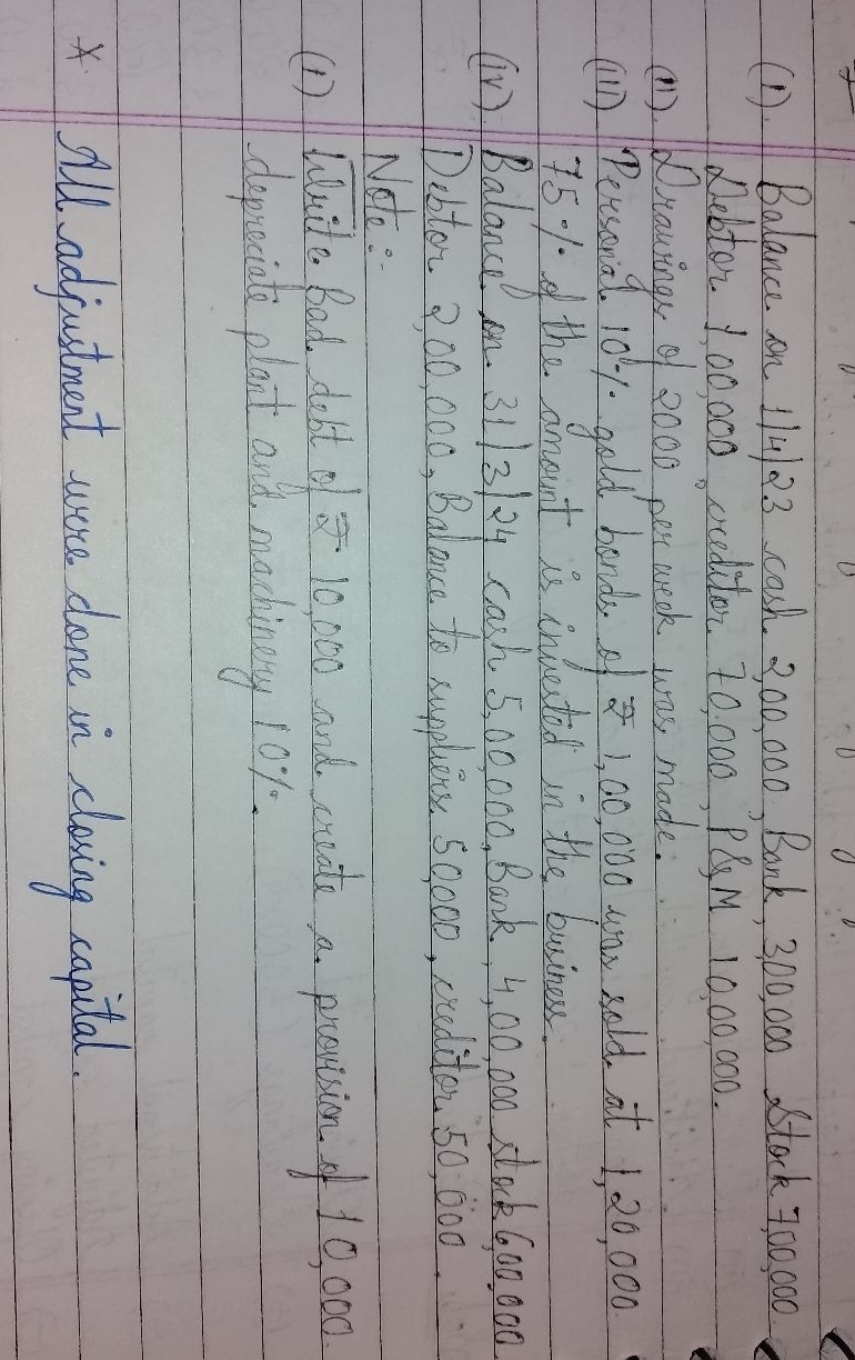 (i). Balance on 1/4/23 cash 2,00,000, Bank, 3,00,000 Stock 7,00,000.
Debtor 1,00,000, creditor 70,000, P&M 10,00,000.
(ii). Drawings of 2000 per week was made.
(iii) Personal 10% gold bonds of ₹ 1,00,000 was sold at 1,20,000
75% of the amount is invested in the business.
(iv). Balance on 31/3/24 cash 5,00,000, Bank, 4,00,000 stock 6,00,000
Debtor 2,00,000, Balance to suppliers 50,000, creditor 50,000.
Note:-
(i) Write Bad debt of ₹ 10,000 and create a provision of 10,000.
depreciate plant and machinery 10%.
* All adjustment were done in closing capital.